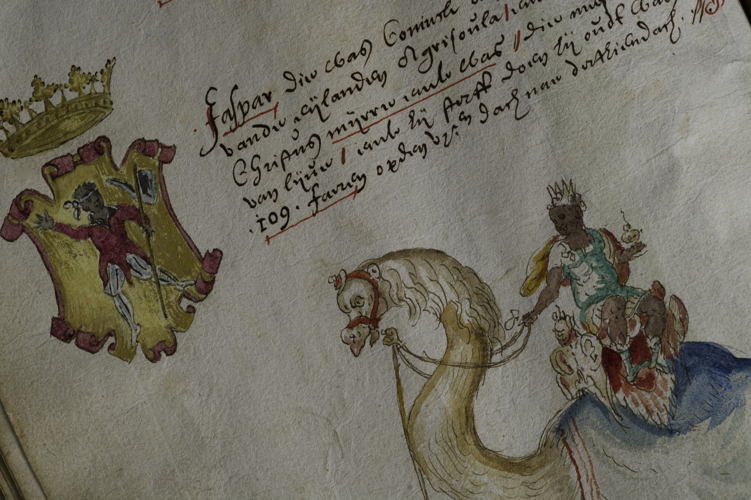 Jaspar die was Coninck
vande eijlanden Grisoula
Christus mijrre ende was die
van lijve ende hij sterff doen hij oudt was
.109. Jaren opden dach naer derthiendach.